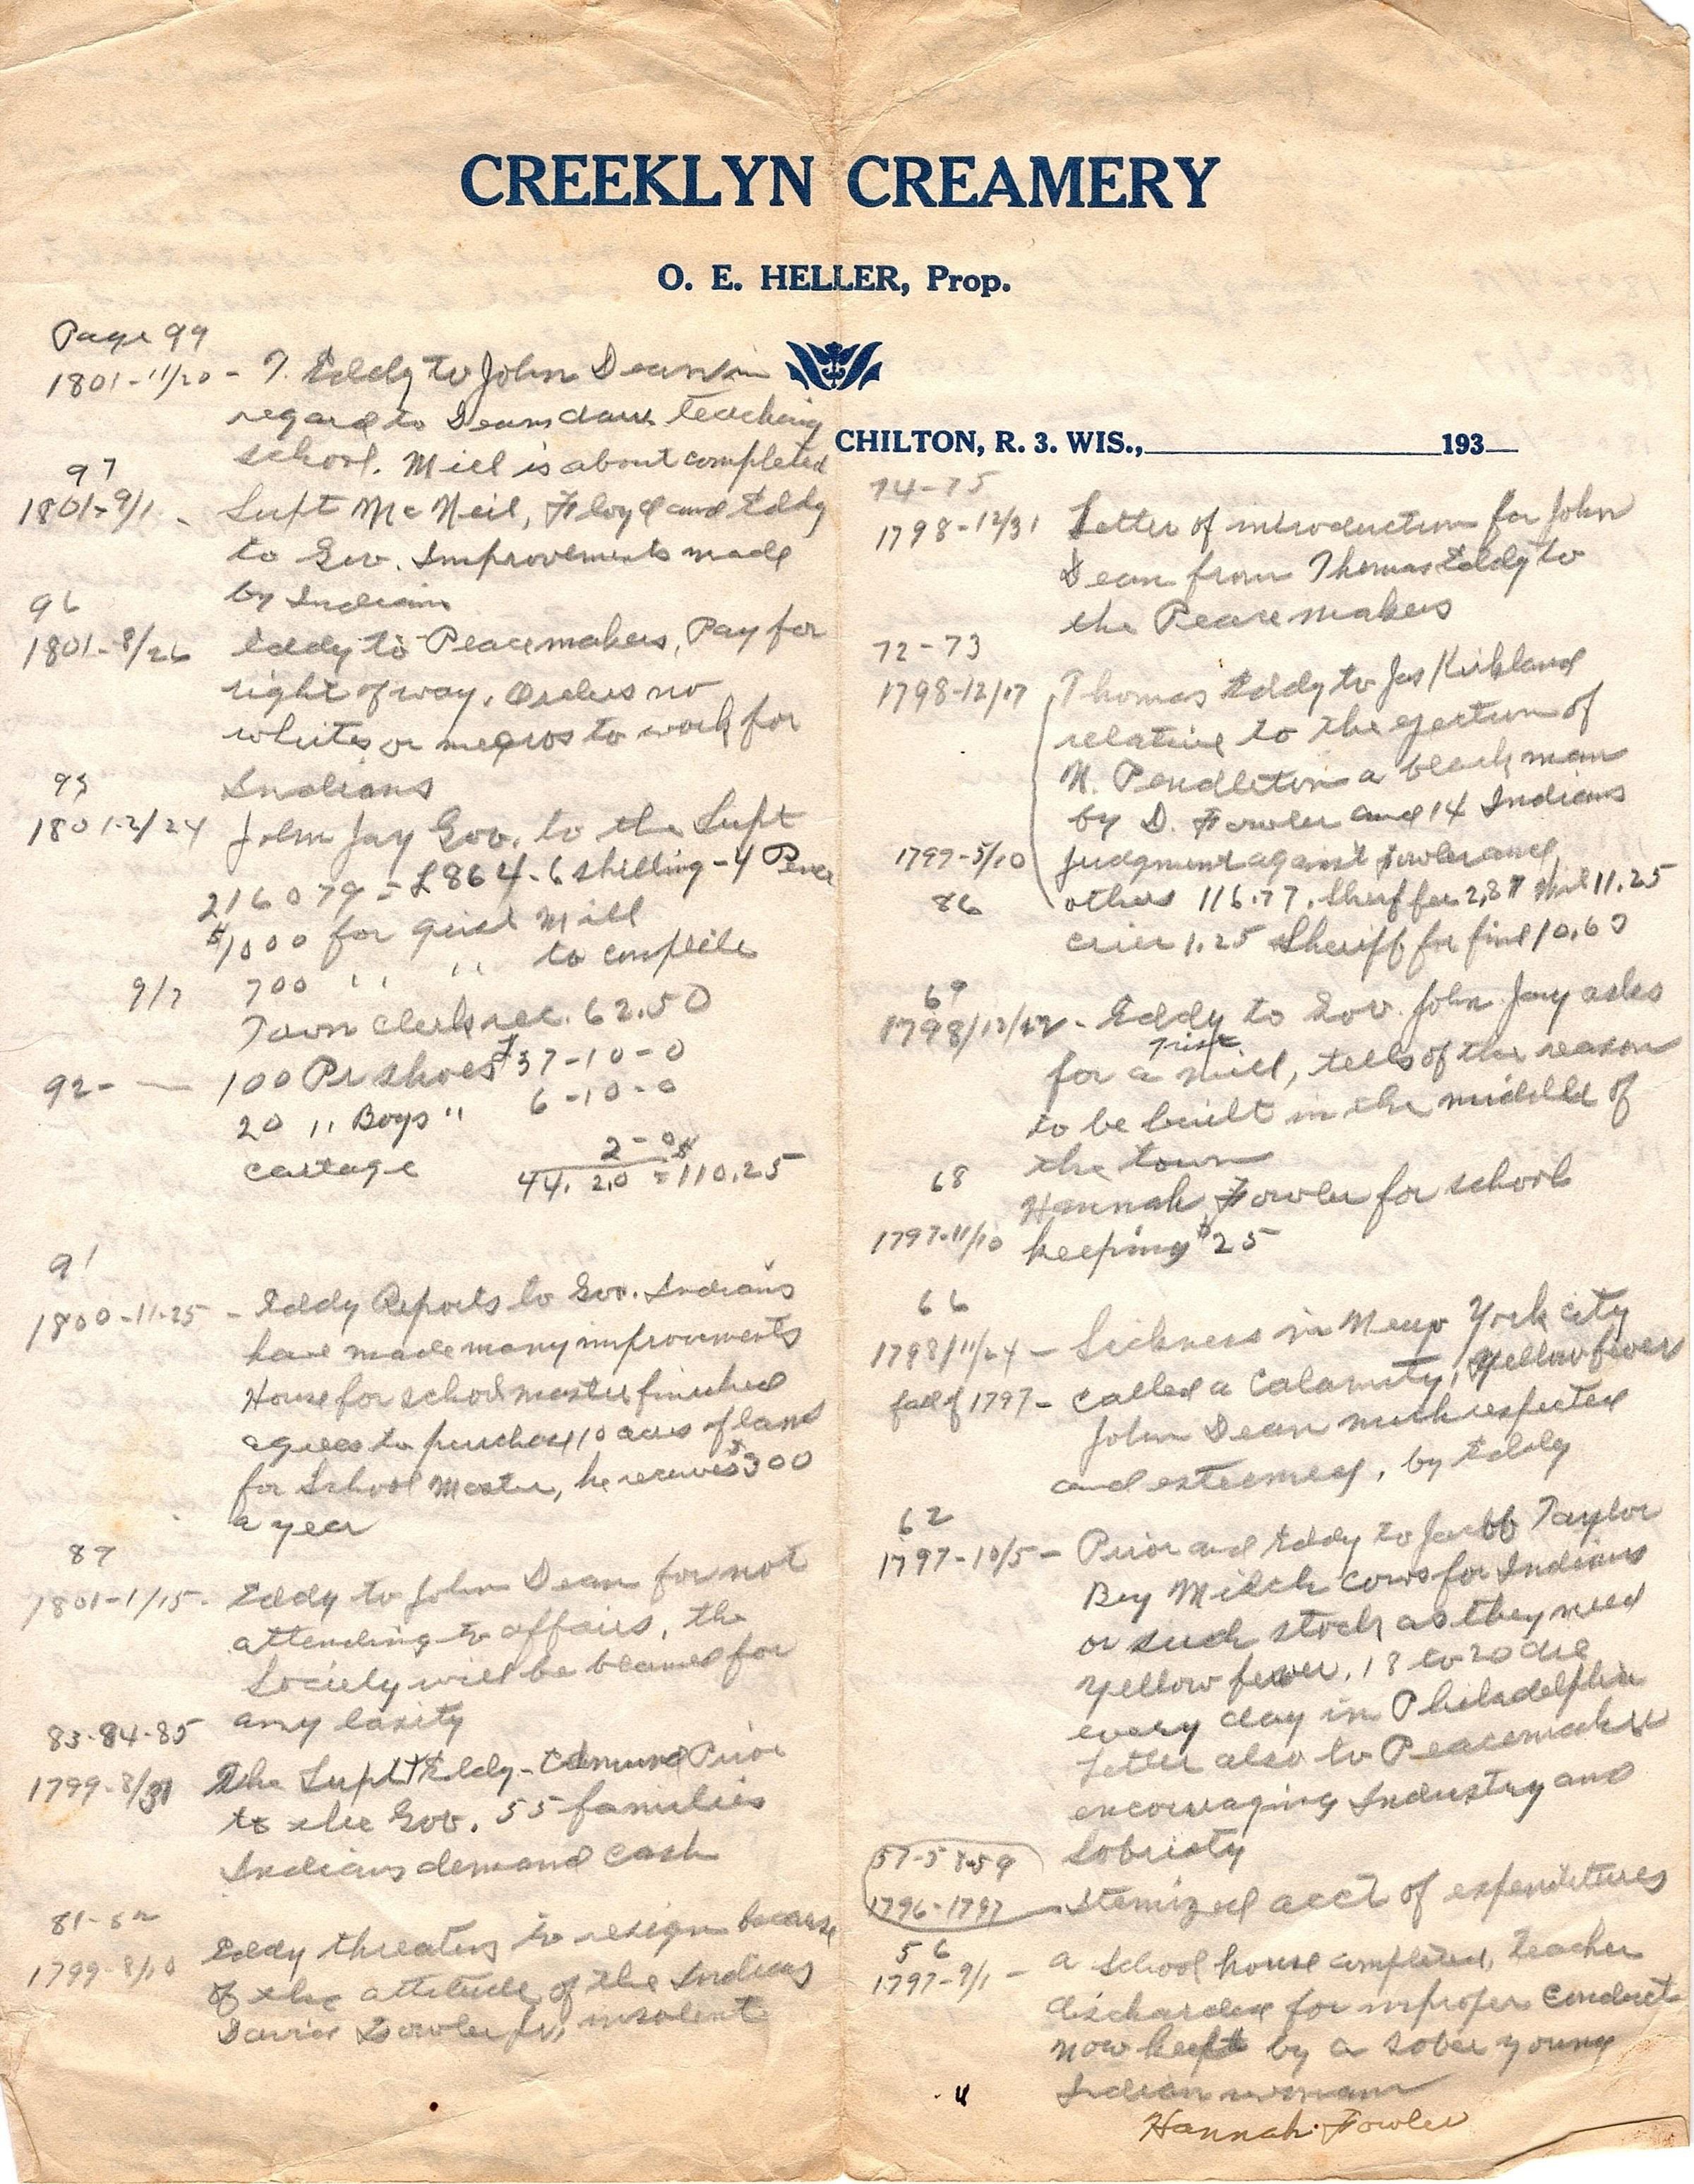 CREEKLYN CREAMERY
O. E. HELLER, Prop.
CHILTON, R. 3. WIS., 193
Page 99
1801-11/20 - T. Eddy to John Dean in
regard to Deans daur teaching
school. Mill is about completed
97
1801-9/1 - Supt McNeil, Floyd and Eddy
to Gov. Improvements made
by Indians
96
1801-8/26 Eddy to Peacemakers, Pay for
right of way. Orders no
whites or negros to work for
Indians
93
1801-2/24 John Jay Gov. to the Supt
216079 = £864-6 shilling-4 Pence
$1000 for grist Mill
9/7 700 " " to complete
Town clerks rec. 62.50
92- — 100 Pr shoes $37-10-0
20 " Boys " 6-10-0
cartage 2-0
44. 2.0 = 110.25
91
1800-11-25 - Eddy Reports to Gov. Indians
have made many improvements
House for school master finished
agrees to purchase 10 acres of land
for School Master, he receives $300
a year
87
1801-1/15- Eddy to John Dean for not
attending to affairs, the
Society will be blamed for
any laxity
83-84-85
1799-8/31 The Supt Eddy - Edmund Prior
to the Gov. 55 families
Indians demand cash
81-82
1799-8/10 Eddy threatens to resign because
of the attitude of the Indians
David Fowler Jr, insolent
74-75
1798-12/31 Letter of introduction for John
Dean from Thomas Eddy to
the Peacemakers
72-73
1798-12/17 Thomas Eddy to Jos Kirkland
relative to the ejection of
N. Pendleton a black man
by D. Fowler and 14 Indians
1797-5/10 Judgment against Fowler and
86 others 116.77. Sherf fee 2,87 Mil 11.25
crier 1.25 Sheriff for find 10.60
69
1798/12/ - Eddy to Gov. John Jay asks
for a Grist mill, tells of the reason
to be built in the middle of
the town
68
Hannah Fowler for school
1797-11/10 keeping $25
66
1798/11/24 - Sickness in New York city
fall of 1797 - called a Calamity, yellow fever
John Dean much respected
and esteemed, by Eddy
62
1797-10/5 - Prior and Eddy to Jacob Taylor
Buy Milch cows for Indians
or such stock as they need
yellow fever. 18 to 20 die
every day in Philadelphia
Letter also to Peacemakers
encouraging Industry and
Sobriety
57-58-59
1796-1797 - Itemized acct of expenditures
56
1797-9/1 - a school house completed, teacher
discharded for inproper conduct
now keept by a sober young
Indian woman
Hannah Fowler